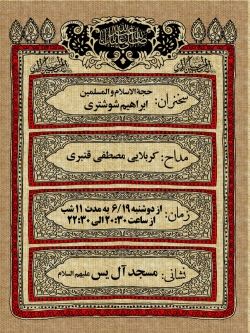 حجةالاسلام و المسلمین
سخنران: ابراهیم شوشتری
مداح: کربلایی مصطفی قنبری
زمان: از دوشنبه ۶/۱۹ به مدت ۱۱ شب
از ساعت ۲۰:۳۰ الی ۲۲:۳۰
نشانی: مسجد آل یس علیهم السلام